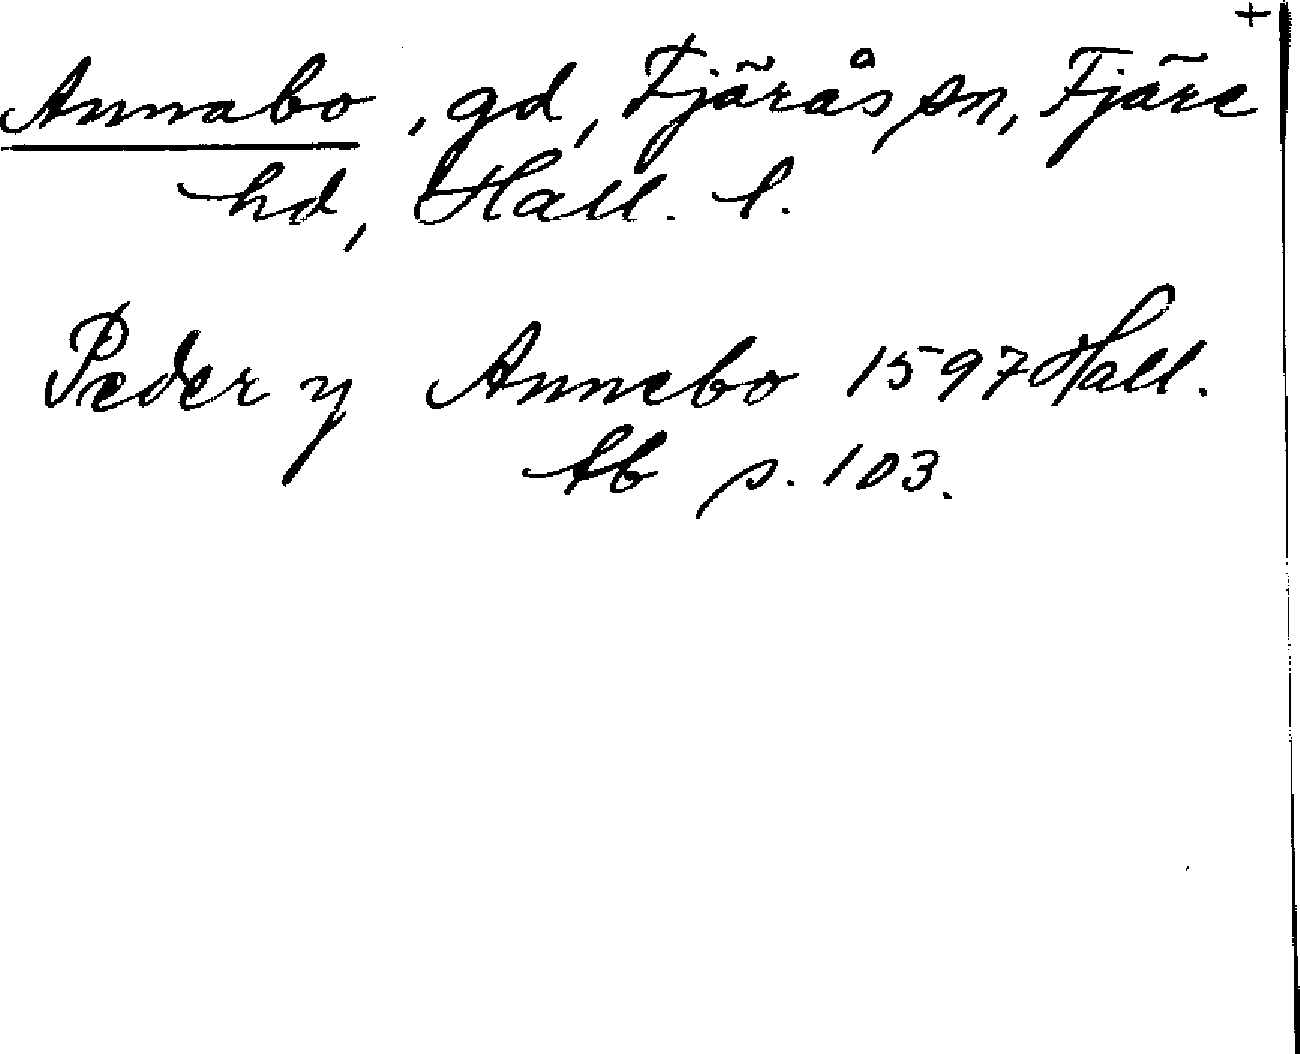 +
Annabo, gd, Fjärås sn, Fjäre
hd, Hall. l.
Peder y Annebo 1597 Hall.
lb s. 103.